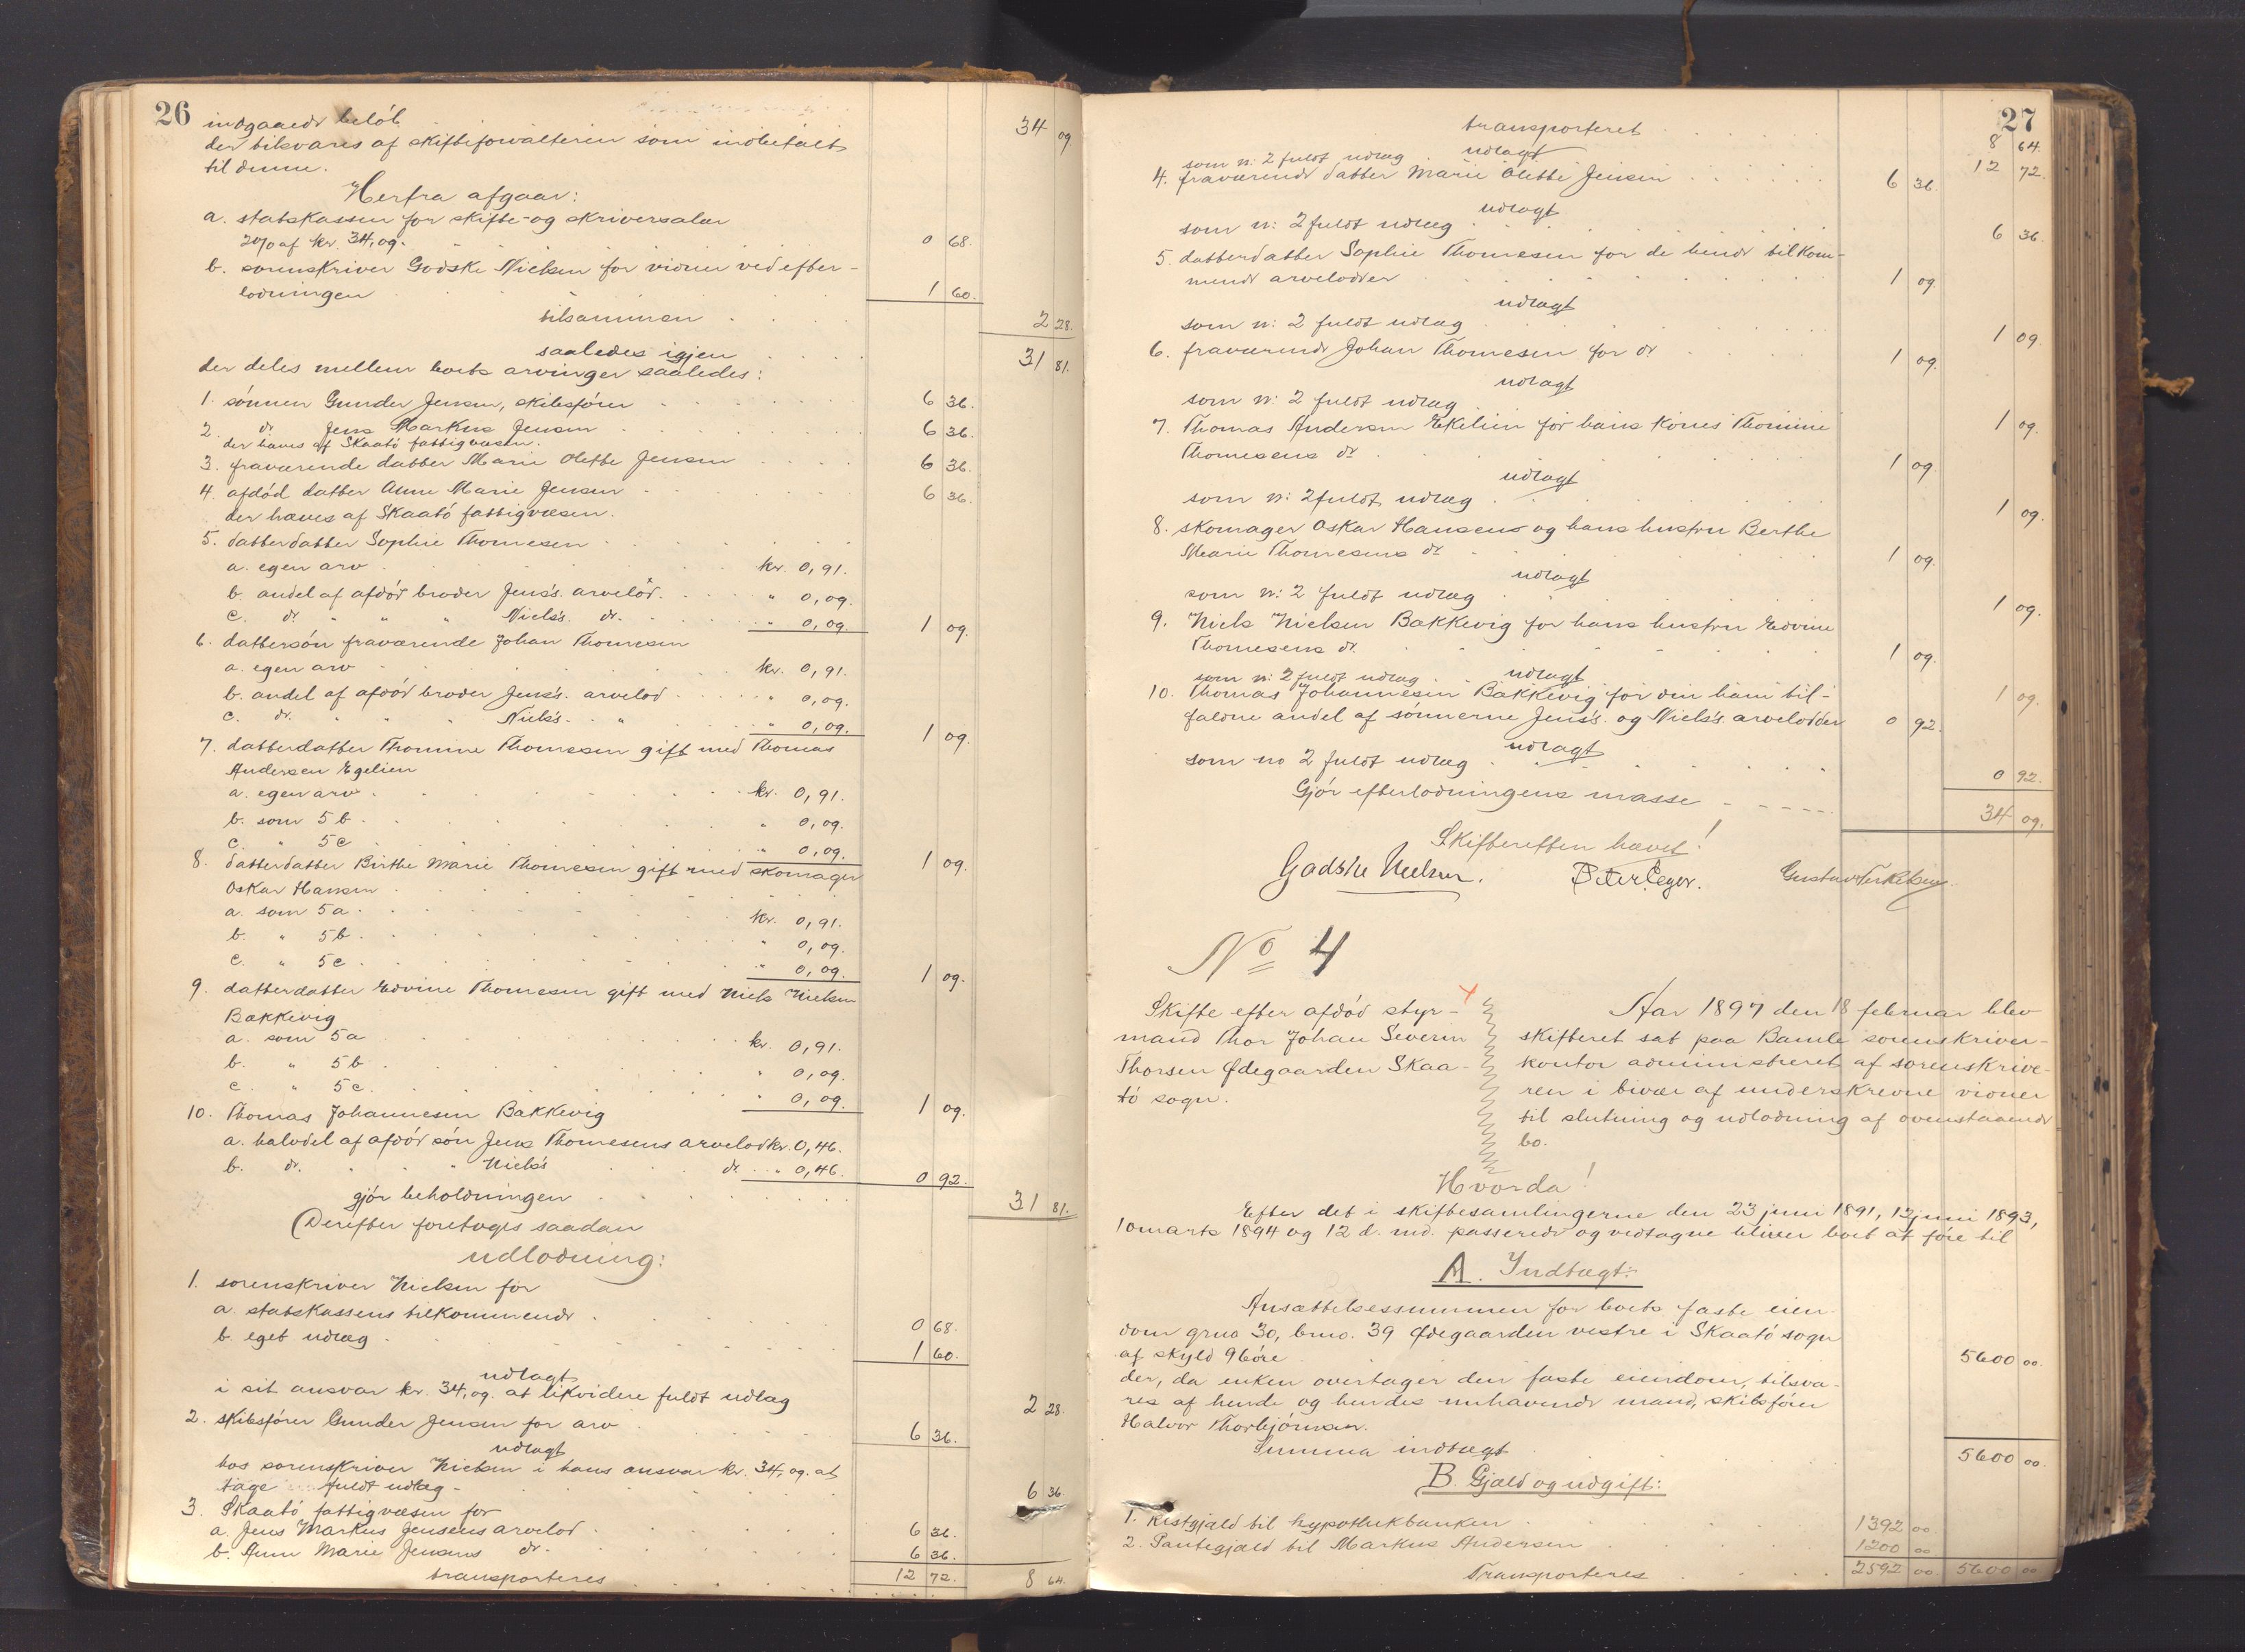 26
indgaaede beløb 34 09.
der tilsvares af skifteforvalteren som indbetalt
til denne.
Herfra afgaar:
a. statskassen for skifte- og skriversalær
2% af kr. 34,09. 0 68.
b. sorenskriver Godske Nielsen for vidner ved efter-
lodningen 1 60.
tilsammen 2 28.
saaledes igjen 31 81.
der deles mellem boets arvinger saaledes:
1. sønnen Gunder Jensen, skibsfører 6 36.
2. do Jens Markus Jensen 6 36.
der hæves af Skaatø fattigvæsen.
3. fraværende datter Marie Olette Jensen 6 36.
4. afdød datter Anne Marie Jensen 6 36.
der hæves af Skaatø fattigvæsen.
5. datterdatter Sophie Thomesen
a. egen arv kr. 0,91.
b. andel af afdød broder Jens's. arvelod. " 0,09.
c. do " " " Niels's. do. " 0,09. 1 09.
6. dattersøn fraværende Johan Thomesen
a. egen arv kr. 0,91.
b. andel af afdød broder Jens's. arvelod " 0,09.
c. do. " " " Niels's. " " 0,09. 1 09.
7. datterdatter Thomine Thomesen gift med Thomas
Andersen Egelien
a. egen arv kr. 0,91.
b. som 5 b. " 0,09.
c. " 5c " 0,09. 1 09.
8. datterdatter Birthe Marie Thomesen gift med skomager
Oskar Hansen
a. som 5a. kr. 0,91.
b. " 5b. " 0,09.
c. " 5c. " 0,09. 1 09.
9. datterdatter Edvine Thomesen gift med Niels Nielsen
Bakkevig
a. som 5a kr. 0,91.
b. " 5b " 0,09.
c. " 5c. " 0,09. 1 09.
10. Thomas Johannesen Bakkevig
a. halvdel af afdød søn Jens Thomesens arvelod kr. 0,46.
b. do. " " " Niels's do. " 0,46. 0 92.
gjør beholdningen 31 81.
Derefter foretoges saadan
udlodning:
1. sorenskriver Nielsen for
a. statskassens tilkommende 0 68.
b. eget udlæg 1 60.
udlagt
i sit ansvar kr. 34,09. at likvidere fuldt udlæg 2 28.
2. skibsfører Gunder Jensen for arv 6 36.
udlagt
hos sorenskriver Nielsen i hans ansvar kr. 34,09. at
tage fuldt udlæg - 6 36.
3. Skaatø fattigvæsen for
a. Jens Markus Jensens arvelod 6 36.
b. Anne Marie Jensens do. 6 36.
transporteres 12 72. 8 64.
27
transporteret 8 64.
udlagt
som n: 2 fuldt udlæg 12 72.
4. fraværende datter Marie Olette Jensen 6 36.
udlagt
som n: 2 fuldt udlæg 6 36.
5. datterdatter Sophie Thomesen for de hende tilkom-
mende arvelodder 1 09.
udlagt
som n: 2 fuldt udlæg 1 09.
6. fraværende Johan Thomesen for do 1 09.
udlagt
som n: 2 fuldt udlæg 1 09.
7. Thomas Andersen Ekelien for hans kones Thomine
Thomesens do 1 09.
udlagt
som n: 2 fuldt udlæg 1 09.
8. skomager Oskar Hansens og hans hustru Berthe
Marie Thomesens do 1 09.
udlagt
som n: 2 fuldt udlæg 1 09.
9. Niels Nielsen Bakkevig for hans hustru Edvine
Thomesens do. 1 09.
udlagt
som n: 2 fuldt udlæg 1 09.
10. Thomas Johannesen Bakkevig for den ham til-
faldne andel af sønnerne Jens's. og Niels's. arvelodder 0 92.
udlagt
som no 2 fuldt udlæg 0 92.
Gjør efterlodningens masse 34 09.
Skifteretten hævet!
Godske Nielsen. Peter Leger. Gustav Terkelsen.
No 4
Skifte efter afdød styr-
mand Thor Johan Severin
Thorsen Ødegaarden Skaa-
tø sogn.
Aar 1897 den 18 februar blev
skifteret sat paa Bamle sorenskriver-
kontor administreret af sorenskrive-
ren i bivær af underskrevne vidner
til slutning og udlodning af ovenstaaende
bo.
Hvorda!
Efter det i skiftesamlingerne den 23 juni 1891, 12 juni 1893,
10 marts 1894 og 12 d. md. passerede og vedtagne bliver boet at føre til
A. Indtægt:
Ansættelsessummen for boets faste eien-
dom gr no 30, br no. 39 Ødegaarden vestre i Skaatø sogn
af skyld 96 øre 5600 00.
der, da enken overtager den faste eiendom, tilsva-
res af hende og hendes nuhavende mand, skibsfører
Halvor Thorbjørnsen.
Summa indtægt 5600 00.
B. Gjæld og udgift:
1. Restgjæld til hypothekbanken 1392 00.
2. Pantegjæld til Markus Andersen 1200 00
Transporteres 2592 00 5600 00